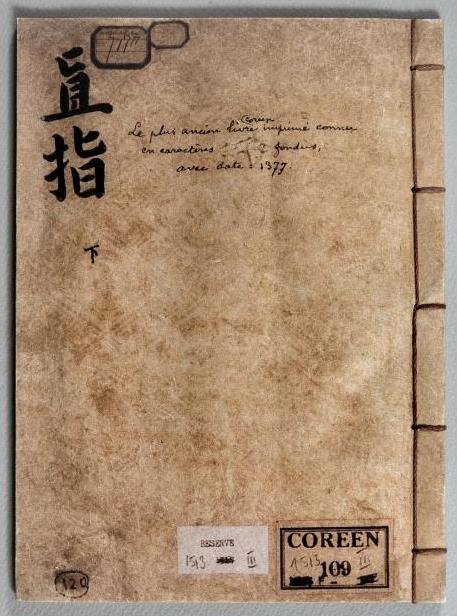 直指
下
coréen
Le plus ancien livre imprimé connu
en caractères fondus,
avec date = 1377.
RESERVE
1513 III
COREEN
1513 III
109